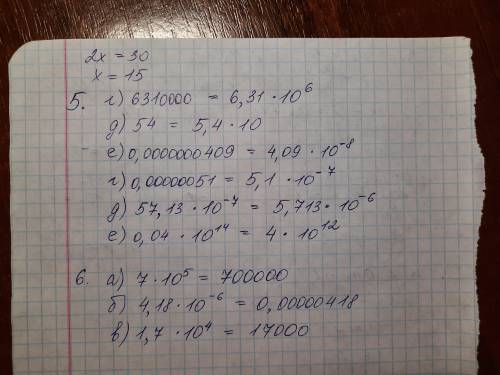 2x = 30
x = 15
5. г) 6310000 = 6,31 · 10⁶
д) 54 = 5,4 · 10
е) 0,0000000409 = 4,09 · 10⁻⁸
г) 0,00000051 = 5,1 · 10⁻⁷
д) 57,13 · 10⁻⁷ = 5,713 · 10⁻⁶
е) 0,04 · 10¹⁴ = 4 · 10¹²
6. а) 7 · 10⁵ = 700000
б) 4,18 · 10⁻⁶ = 0,00000418
в) 1,7 · 10⁴ = 17000